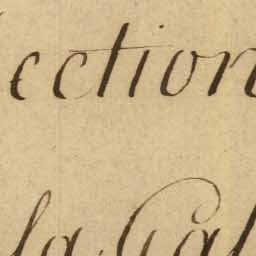 ection
la Gal